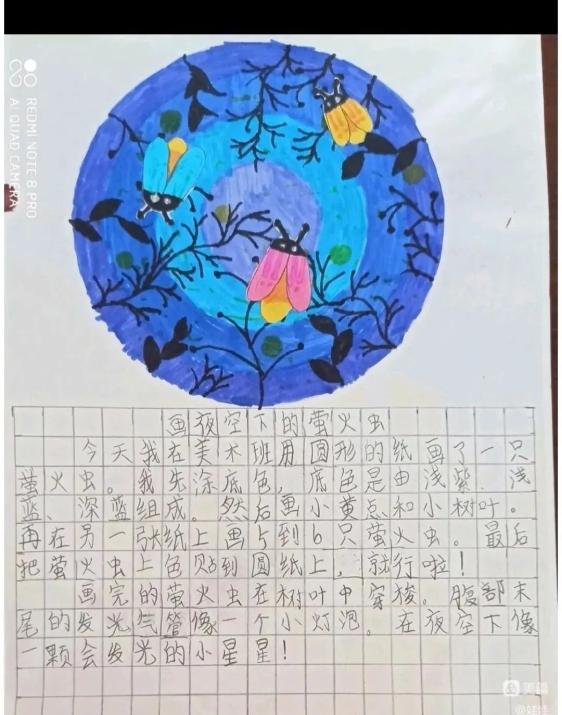 REDMI NOTE 8 PRO
AI QUAD CAMERA
画夜空下的萤火虫
今天我在美术班用圆形的纸画了一只
萤火虫。我先涂底色，底色是由浅紫、浅
蓝、深蓝组成。然后画小黄点和小树叶。
再在另一张纸上画5到6只萤火虫。最后
把萤火虫上色贴到圆纸上，就行啦！
画完的萤火虫在树叶中穿梭。腹部末
尾的发光气管像一个小灯泡。在夜空下像
一颗会发光的小星星！
美篇